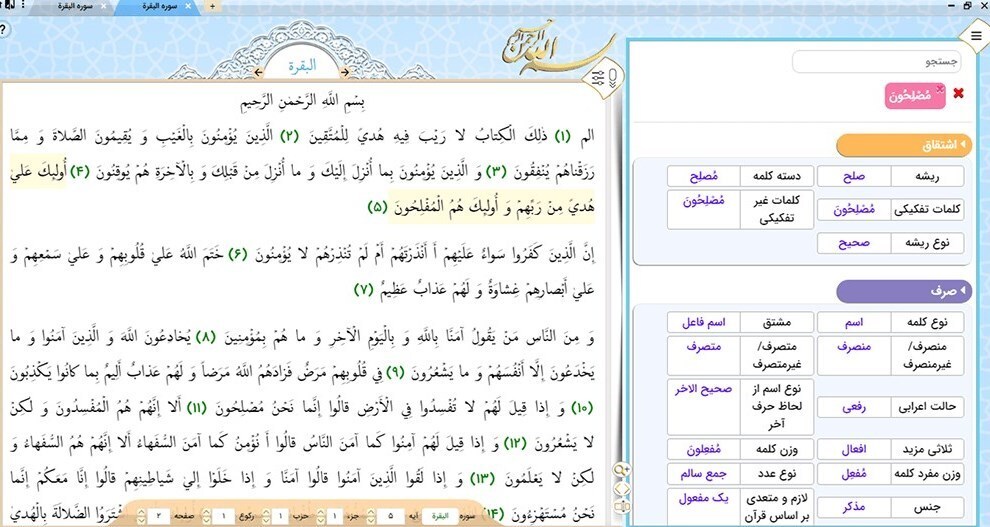 سوره البقرة
سوره البقرة
البقرة
بِسْمِ اللَّهِ الرَّحْمٰنِ الرَّحِيمِ
الم (۱) ذٰلِكَ الْكِتابُ لا رَيْبَ فِيهِ هُديً لِلْمُتَّقِينَ (۲) الَّذِينَ يُؤْمِنُونَ بِالْغَيْبِ وَ يُقِيمُونَ الصَّلاةَ وَ مِمَّا
رَزَقْناهُمْ يُنْفِقُونَ (۳) وَ الَّذِينَ يُؤْمِنُونَ بِما أُنْزِلَ إِلَيْكَ وَ ما أُنْزِلَ مِنْ قَبْلِكَ وَ بِالْآخِرَةِ هُمْ يُوقِنُونَ (۴) أُولٰئِكَ عَليٰ
هُديً مِنْ رَبِّهِمْ وَ أُولٰئِكَ هُمُ الْمُفْلِحُونَ (۵)
إِنَّ الَّذِينَ كَفَرُوا سَواءٌ عَلَيْهِمْ أَ أَنْذَرْتَهُمْ أَمْ لَمْ تُنْذِرْهُمْ لا يُؤْمِنُونَ (۶) خَتَمَ اللَّهُ عَليٰ قُلُوبِهِمْ وَ عَليٰ سَمْعِهِمْ وَ
عَليٰ أَبْصارِهِمْ غِشاوَةٌ وَ لَهُمْ عَذابٌ عَظِيمٌ (۷)
وَ مِنَ النَّاسِ مَنْ يَقُولُ آمَنَّا بِاللَّهِ وَ بِالْيَوْمِ الْآخِرِ وَ ما هُمْ بِمُؤْمِنِينَ (۸) يُخادِعُونَ اللَّهَ وَ الَّذِينَ آمَنُوا وَ ما
يَخْدَعُونَ إِلَّا أَنْفُسَهُمْ وَ ما يَشْعُرُونَ (۹) فِي قُلُوبِهِمْ مَرَضٌ فَزادَهُمُ اللَّهُ مَرَضاً وَ لَهُمْ عَذابٌ أَلِيمٌ بِما كانُوا يَكْذِبُونَ
(۱۰) وَ إِذا قِيلَ لَهُمْ لا تُفْسِدُوا فِي الْأَرْضِ قالُوا إِنَّما نَحْنُ مُصْلِحُونَ (۱۱) أَلا إِنَّهُمْ هُمُ الْمُفْسِدُونَ وَ لٰكِنْ
لا يَشْعُرُونَ (۱۲) وَ إِذا قِيلَ لَهُمْ آمِنُوا كَما آمَنَ النَّاسُ قالُوا أَ نُؤْمِنُ كَما آمَنَ السُّفَهاءُ أَلا إِنَّهُمْ هُمُ السُّفَهاءُ وَ
لٰكِنْ لا يَعْلَمُونَ (۱۳) وَ إِذا لَقُوا الَّذِينَ آمَنُوا قالُوا آمَنَّا وَ إِذا خَلَوْا إِليٰ شَياطِينِهِمْ قالُوا إِنَّا مَعَكُمْ إِنَّما
نَحْنُ مُسْتَهْزِءُونَ (۱۴) اشْتَرَوُا الضَّلالَةَ بِالْهُديٰ
سوره البقرة آیه ۵ جزء ۱ حزب ۱ رکوع ۱ صفحه ۲
جستجو
مُصْلِحُونَ
اشتقاق
ریشه صلح دسته کلمه مُصلِح
کلمات تفکیکی مُصْلِحُونَ کلمات غیر تفکیکی مُصْلِحُونَ
نوع ریشه صحیح
صرف
نوع کلمه اسم مشتق اسم فاعل
منصرف/غیرمنصرف منصرف متصرف/غیرمتصرف متصرف
حالت اعرابی رفعی نوع اسم از لحاظ حرف آخر صحیح الاخر
ثلاثی مزید افعال وزن کلمه مُفعِلونَ
وزن مفرد کلمه مُفعِل نوع عدد جمع سالم
جنس مذکر لازم و متعدی بر اساس قرآن یک مفعول